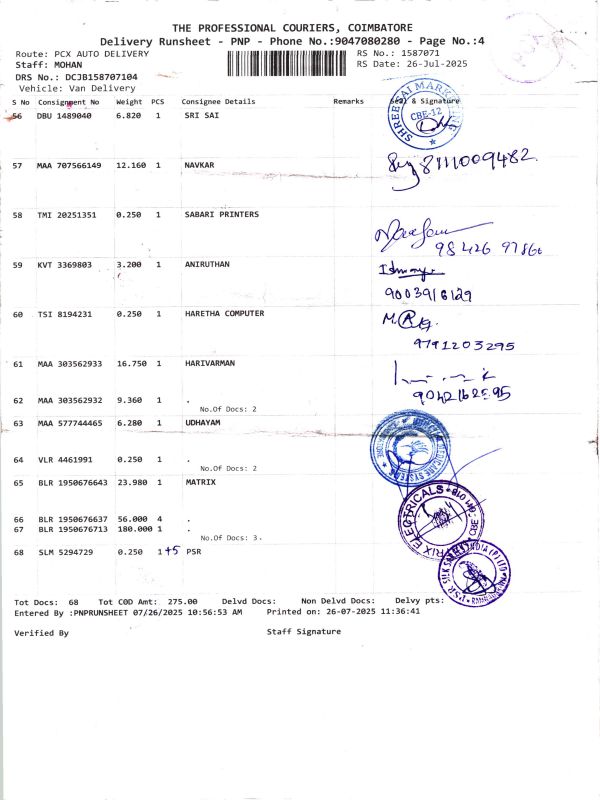 THE PROFESSIONAL COURIERS, COIMBATORE
Delivery Runsheet - PNP - Phone No.:9047080280 - Page No.:4
Route: PCX AUTO DELIVERY RS No.: 1587071
Staff: MOHAN RS Date: 26-Jul-2025
DRS No.: DCJB158707104
Vehicle: Van Delivery
S No Consignment No Weight PCS Consignee Details Remarks Seal & Signature
56 DBU 1489040 6.820 1 SRI SAI
SHREE SAI MARKETING
CBE-12
57 MAA 707566149 12.160 1 NAVKAR
8111009482
58 TMI 20251351 0.250 1 SABARI PRINTERS
98426 97866
59 KVT 3369803 3.200 1 ANIRUTHAN
9003916129
60 TSI 8194231 0.250 1 HARETHA COMPUTER
9791203295
61 MAA 303562933 16.750 1 HARIVARMAN
62 MAA 303562932 9.360 1 .
No.Of Docs: 2
63 MAA 577744465 6.280 1 UDHAYAM
64 VLR 4461991 0.250 1 .
No.Of Docs: 2
65 BLR 1950676643 23.980 1 MATRIX
66 BLR 1950676637 56.000 4 .
67 BLR 1950676713 180.000 1 .
No.Of Docs: 3.
68 SLM 5294729 0.250 1+5 PSR
Tot Docs: 68 Tot COD Amt: 275.00 Delvd Docs: Non Delvd Docs: Delvy pts:
Entered By :PNPRUNSHEET 07/26/2025 10:56:53 AM Printed on: 26-07-2025 11:36:41
Verified By Staff Signature